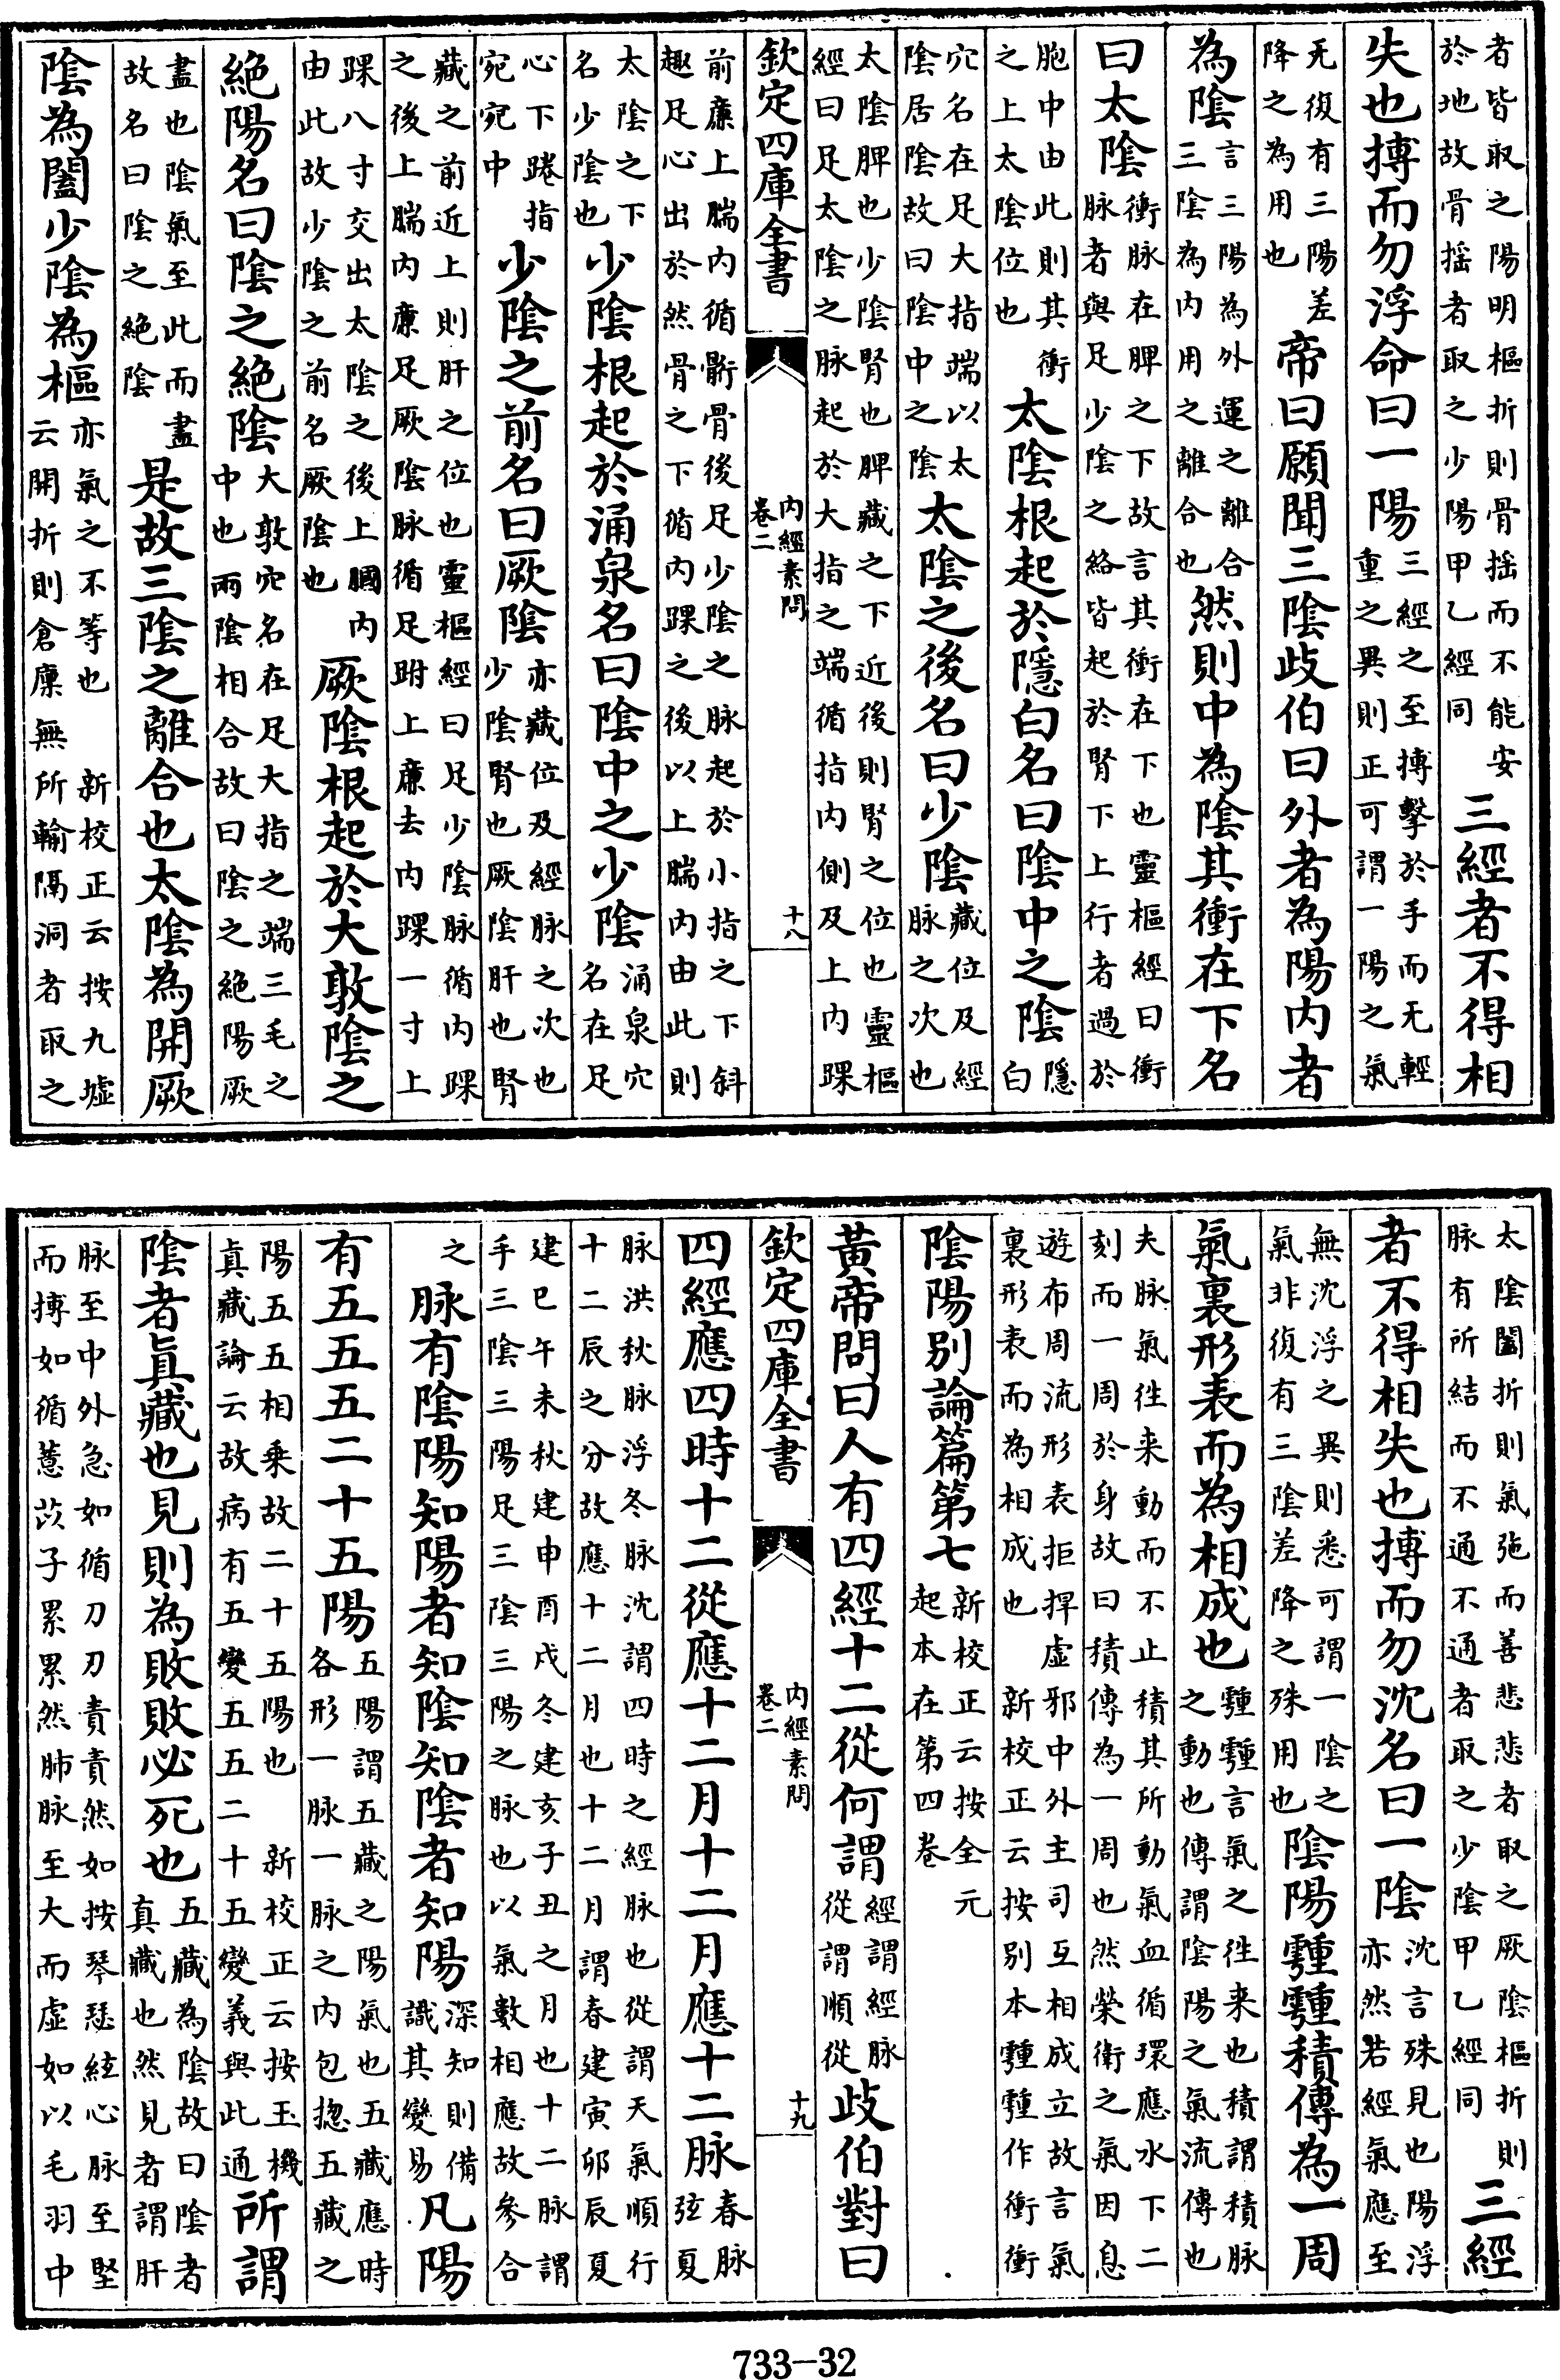 者皆取之陽明樞折則骨揺而不能安於地故骨揺者取之少陽甲乙經同三經者不得相
失也搏而勿浮命曰一陽三經之至搏擊於手而无輕重之異則正可謂一陽之氣
无復有三陽差降之為用也帝曰願聞三陰歧伯曰外者為陽内者
為陰言三陽為外運之離合三陰為内用之離合也然則中為陰其衝在下名
曰太陰衝脉在脾之下故言其衝在下也靈樞經曰衝脉者與足少陰之絡皆起於腎下上行者過於
胞中由此則其衝之上太陰位也太陰根起於隱白名曰陰中之陰隱白
穴名在足大指端以太陰居陰故曰陰中之陰太陰之後名曰少陰藏位及經脉之次也
太陰脾也少陰腎也脾藏之下近後則腎之位也靈樞經曰足太陰之脉起於大指之端循指内側及上内踝
欽定四庫全書 内經素問 卷二 十八
前亷上腨内循䯒骨後足少陰之脉起於小指之下斜趣足心出於然骨之下循内踝之後以上腨内由此則
太陰之下名少陰也少陰根起於涌泉名曰陰中之少陰涌泉穴名在足
心下踡指宛宛中少陰之前名曰厥陰亦藏位及經脉之次也少陰腎也厥陰肝也腎
藏之前近上則肝之位也靈樞經曰足少陰脉循内踝之後上腨内亷足厥陰脉循足跗上亷去内踝一寸上
踝八寸交出太陰之後上膕内由此故少陰之前名厥陰也厥陰根起於大敦陰之
絶陽名曰陰之絶陰大敦穴名在足大指之端三毛之中也兩陰相合故曰陰之絶陽厥
盡也陰氣至此而盡故名曰陰之絶陰是故三陰之離合也太陰為開厥
陰為闔少陰為樞亦氣之不等也 新校正云按九墟云開折則倉廩無所輸隔洞者取之
太陰闔折則氣弛而善悲悲者取之厥陰樞折則脉有所結而不通不通者取之少陰甲乙經同三經
者不得相失也搏而勿沈名曰一陰沈言殊見也陽浮亦然若經氣應至
無沈浮之異則悉可謂一陰之氣非復有三陰差降之殊用也陰陽䨦䨦積傳為一周
氣裏形表而為相成也䨦䨦言氣之往来也積謂積脉之動也傳謂陰陽之氣流傳也
夫脉氣往来動而不止積其所動氣血循環應水下二刻而一周於身故曰積傳為一周也然榮衛之氣因息
遊布周流形表拒捍虚邪中外主司互相成立故言氣裏形表而為相成也 新校正云按别本䨦䨦作衝衝
陰陽别論篇第七新校正云按全元起本在第四卷
黃帝問曰人有四經十二從何謂經謂經脉從謂順從歧伯對曰
欽定四庫全書 内經素問 卷二 十九
四經應四時十二從應十二月十二月應十二脉春脉弦夏
脉洪秋脉浮冬脉沈謂四時之經脉也從謂天氣順行十二辰之分故應十二月也十二月謂春建寅卯辰夏
建巳午未秋建申酉戌冬建亥子丑之月也十二脉謂手三陰三陽足三陰三陽之脉也以氣數相應故參合
之脉有陰陽知陽者知陰知陰者知陽深知則備識其變易凡陽
有五五五二十五陽五陽謂五藏之陽氣也五藏應時各形一脉一脉之内包揔五藏之
陽五五相乗故二十五陽也 新校正云按玉機真藏論云故病有五變五五二十五變義與此通所謂
陰者真藏也見則為敗敗必死也五藏為陰故曰陰者真藏也然見者謂肝
脉至中外急如循刀刃責責然如按琴瑟絃心脉至堅而搏如循薏苡子累累然肺脉至大而虚如以毛羽中
733-32